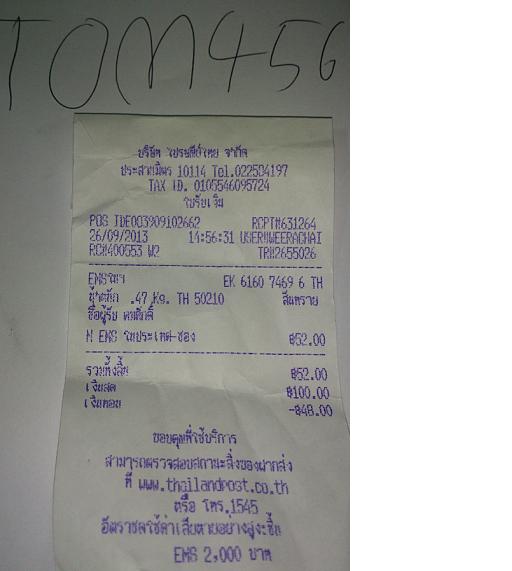 TOM456
บริษัท ไปรษณีย์ไทย จำกัด
ประสานมิตร 10114 Tel.022584197
TAX ID. 0105546095724
ใบรับเงิน
POS IDE003909102662 RCPT#631264
26/09/2013 14:56:31 USER#WEERACHAI
RC#400553 W2 TR#2655026
EMSในฯ EK 6160 7469 6 TH
น้ำหนัก .47 Kg. TH 50210 สันทราย
ชื่อผู้รับ
N EMS ในประเทศ-ซอง ฿52.00
รวมทั้งสิ้น ฿52.00
เงินสด ฿100.00
เงินทอน -฿48.00
ขอบคุณที่ใช้บริการ
สามารถตรวจสอบสถานะสิ่งของฝากส่ง
ที่ www.thailandpost.co.th
หรือ โทร.1545
อัตราชดใช้ค่าเสียหายอย่างสูงชิ้น
EMS 2,000 บาท